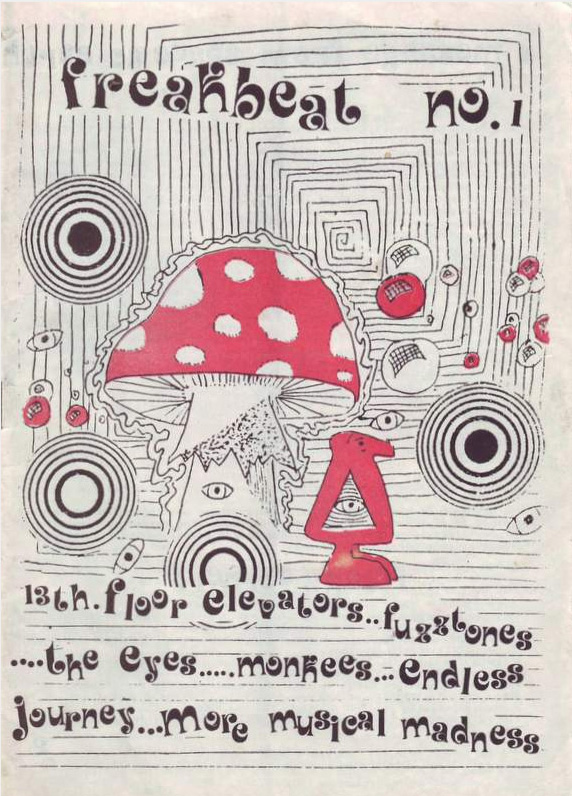 freakbeat no.1
13th.floor elevators..fuzztones
....the eyes.....monkees...endless
journey...more musical madness